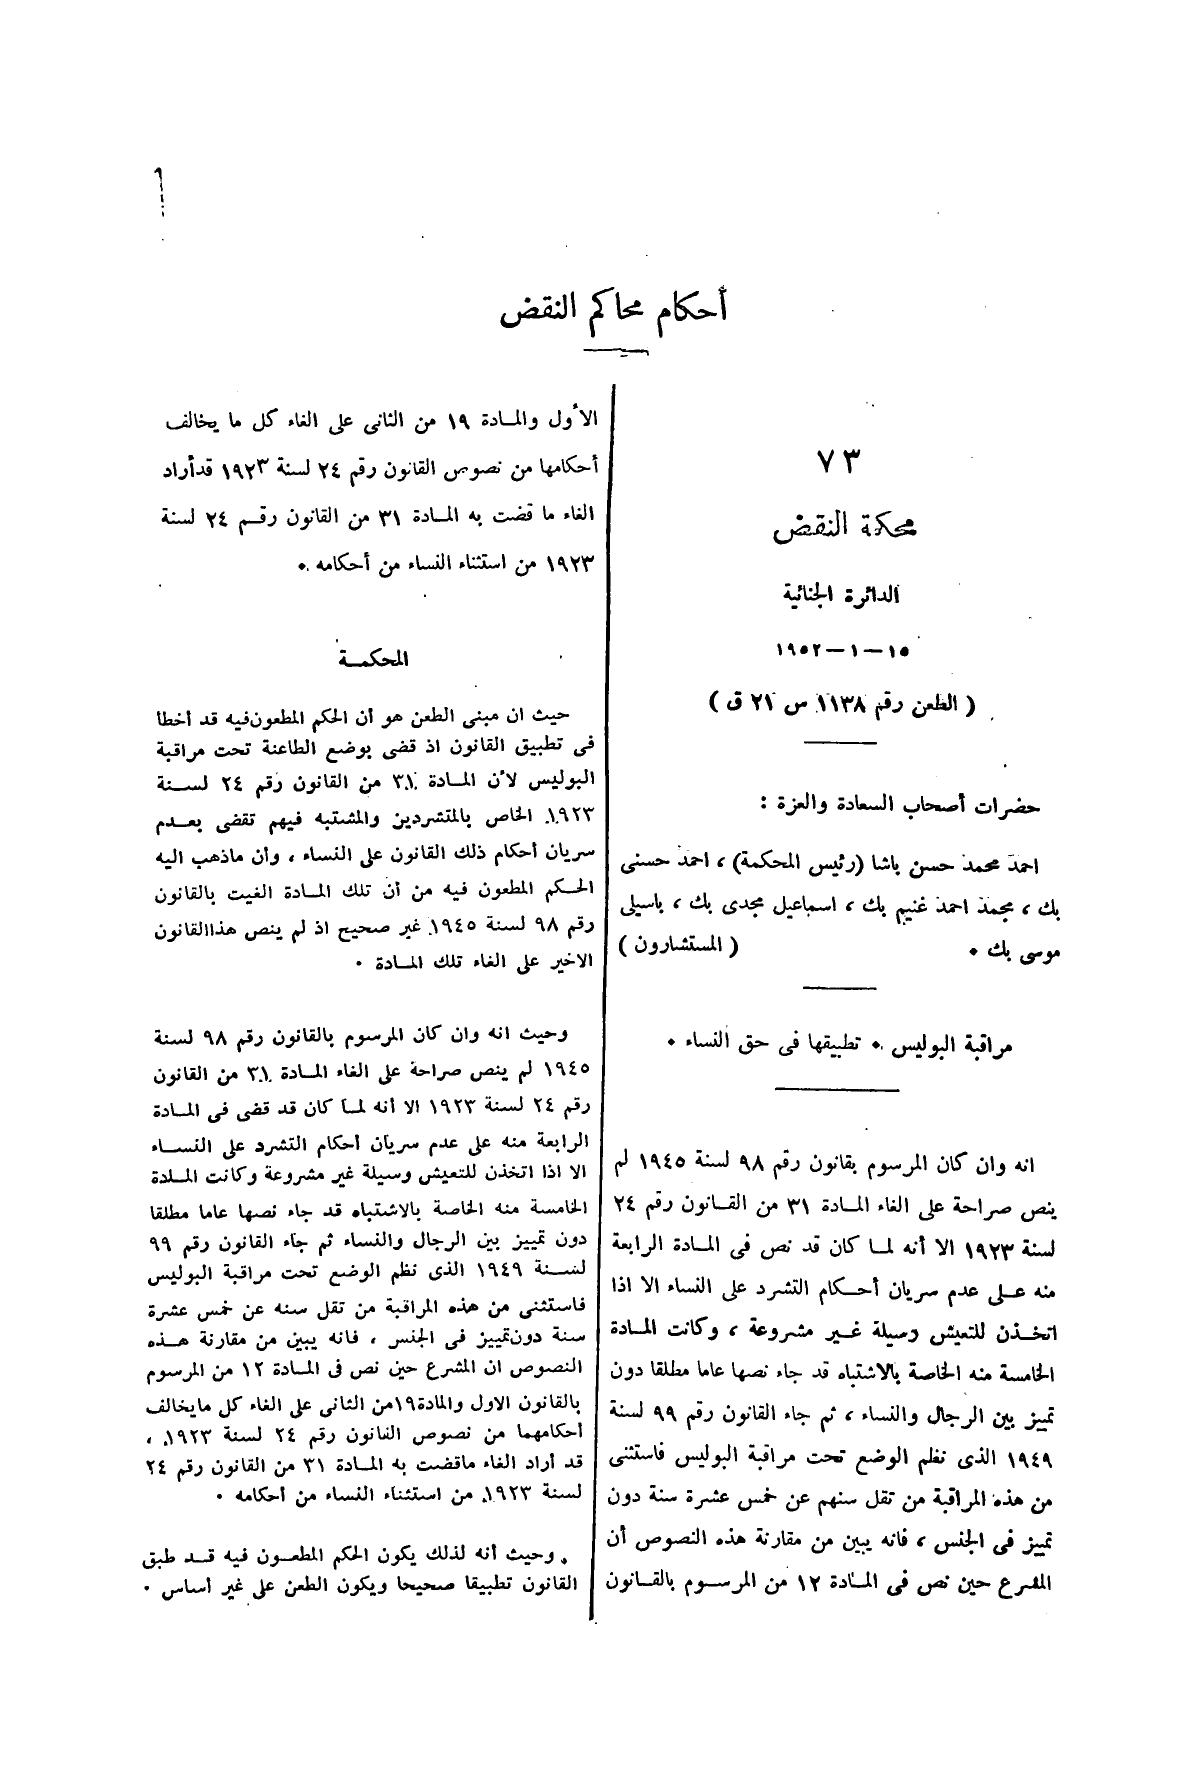 أحكام محاكم النقض
٧٣
محكمة النقض
الدائرة الجنائية
١٥ — ١ — ١٩٥٢
( الطعن رقم ١١٣٨ س ٢١ ق )
حضرات أصحاب السعادة والعزة :
احمد محمد حسن باشا (رئيس المحكمة) ، احمد حسنى
بك ، محمد احمد غنيم بك ، اسماعيل مجدى بك ، باسيلى
موسى بك . ( المستشارون )
مراقبة البوليس . تطبيقها فى حق النساء .
انه وان كان المرسوم بقانون رقم ٩٨ لسنة ١٩٤٥ لم
ينص صراحة على الغاء المادة ٣١ من القانون رقم ٢٤
لسنة ١٩٢٣ الا أنه لما كان قد نص فى المادة الرابعة
منه على عدم سريان أحكام التشرد على النساء الا اذا
اتخذن للتعيش وسيلة غير مشروعة ، وكانت المادة
الخامسة منه الخاصة بالاشتباه قد جاء نصها عاما مطلقا دون
تمييز بين الرجال والنساء ، ثم جاء القانون رقم ٩٩ لسنة
١٩٤٩ الذى نظم الوضع تحت مراقبة البوليس فاستثنى
من هذه المراقبة من تقل سنهم عن خمس عشرة سنة دون
تمييز فى الجنس ، فانه يبين من مقارنة هذه النصوص أن
المشرع حين نص فى المادة ١٢ من المرسوم بالقانون
الأول والمادة ١٩ من الثانى على الغاء كل ما يخالف
أحكامها من نصوص القانون رقم ٢٤ لسنة ١٩٢٣ قد أراد
الغاء ما قضت به المادة ٣١ من القانون رقم ٢٤ لسنة
١٩٢٣ من استثناء النساء من أحكامه .
المحكمة
حيث ان مبنى الطعن هو أن الحكم المطعون فيه قد أخطا
فى تطبيق القانون اذ قضى بوضع الطاعنة تحت مراقبة
البوليس لأن المادة ٣١ من القانون رقم ٢٤ لسنة
١٩٢٣ الخاص بالمتشردين والمشتبه فيهم تقضى بعدم
سريان أحكام ذلك القانون على النساء ، وأن ماذهب اليه
الحكم المطعون فيه من أن تلك المادة الغيت بالقانون
رقم ٩٨ لسنة ١٩٤٥ غير صحيح اذ لم ينص هذا القانون
الاخير على الغاء تلك المادة .
وحيث انه وان كان المرسوم بالقانون رقم ٩٨ لسنة
١٩٤٥ لم ينص صراحة على الغاء المادة ٣١ من القانون
رقم ٢٤ لسنة ١٩٢٣ الا أنه لما كان قد قضى فى المادة
الرابعة منه على عدم سريان أحكام التشرد على النساء
الا اذا اتخذن للتعيش وسيلة غير مشروعة وكانت المادة
الخامسة منه الخاصة بالاشتباه قد جاء نصها عاما مطلقا
دون تمييز بين الرجال والنساء ثم جاء القانون رقم ٩٩
لسنة ١٩٤٩ الذى نظم الوضع تحت مراقبة البوليس
فاستثنى من هذه المراقبة من تقل سنه عن خمس عشرة
سنة دون تمييز فى الجنس ، فانه يبين من مقارنة هذه
النصوص ان المشرع حين نص فى المادة ١٢ من المرسوم
بالقانون الاول والمادة ١٩ من الثانى على الغاء كل مايخالف
أحكامهما من نصوص القانون رقم ٢٤ لسنة ١٩٢٣ ،
قد أراد الغاء ماقضت به المادة ٣١ من القانون رقم ٢٤
لسنة ١٩٢٣ من استثناء النساء من أحكامه .
وحيث أنه لذلك يكون الحكم المطعون فيه قد طبق
القانون تطبيقا صحيحا ويكون الطعن على غير أساس .